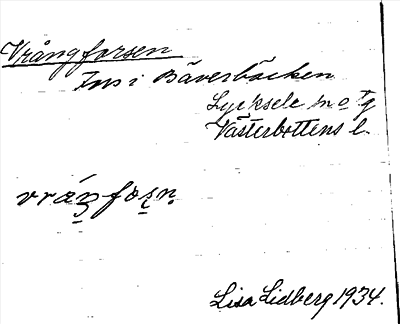 Vrångforsen
Fors i Bäverbäcken
Lycksele
Västerbottens l.
Lisa Lidberg 1934.